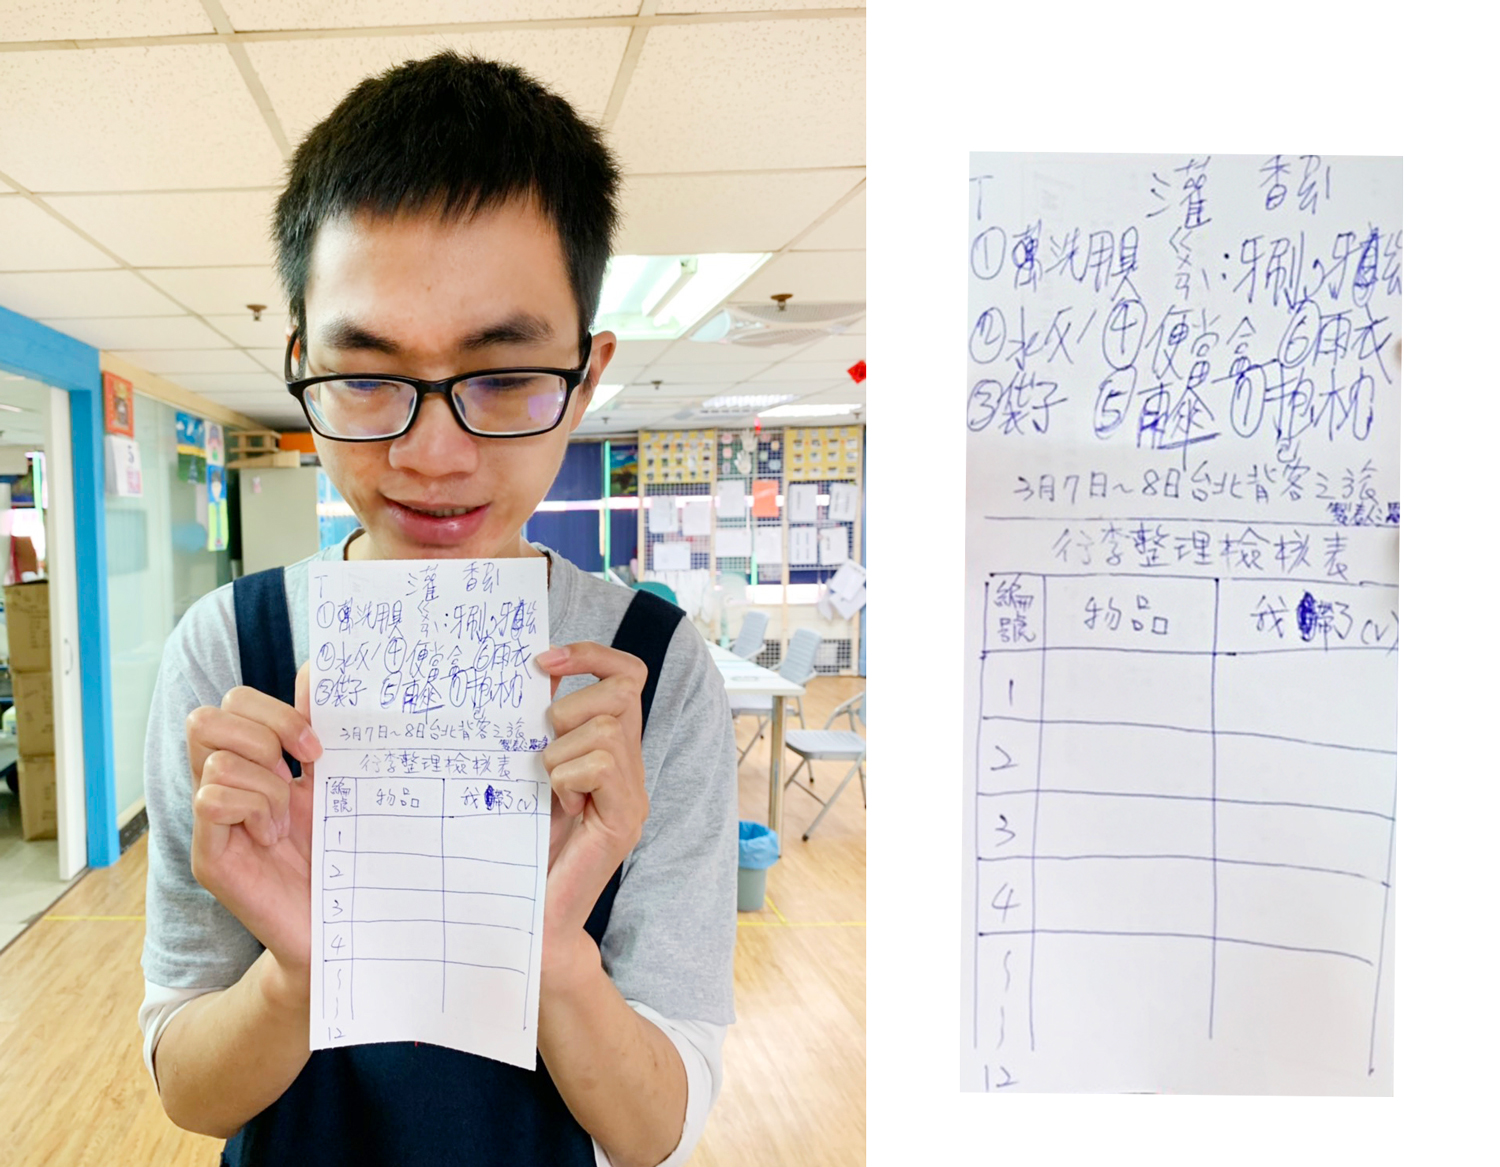 T 灌 香
①盥洗用具 ㄍㄨㄢˋ:牙刷,牙
②水 ④便當盒 ⑥雨衣
③袋子 ⑤雨傘 ⑦抱枕
包
3月7日~8日台北背客之旅
製表人:
行李整理檢核表
編號 物品 我帶了(V)
1
2
3
4
12